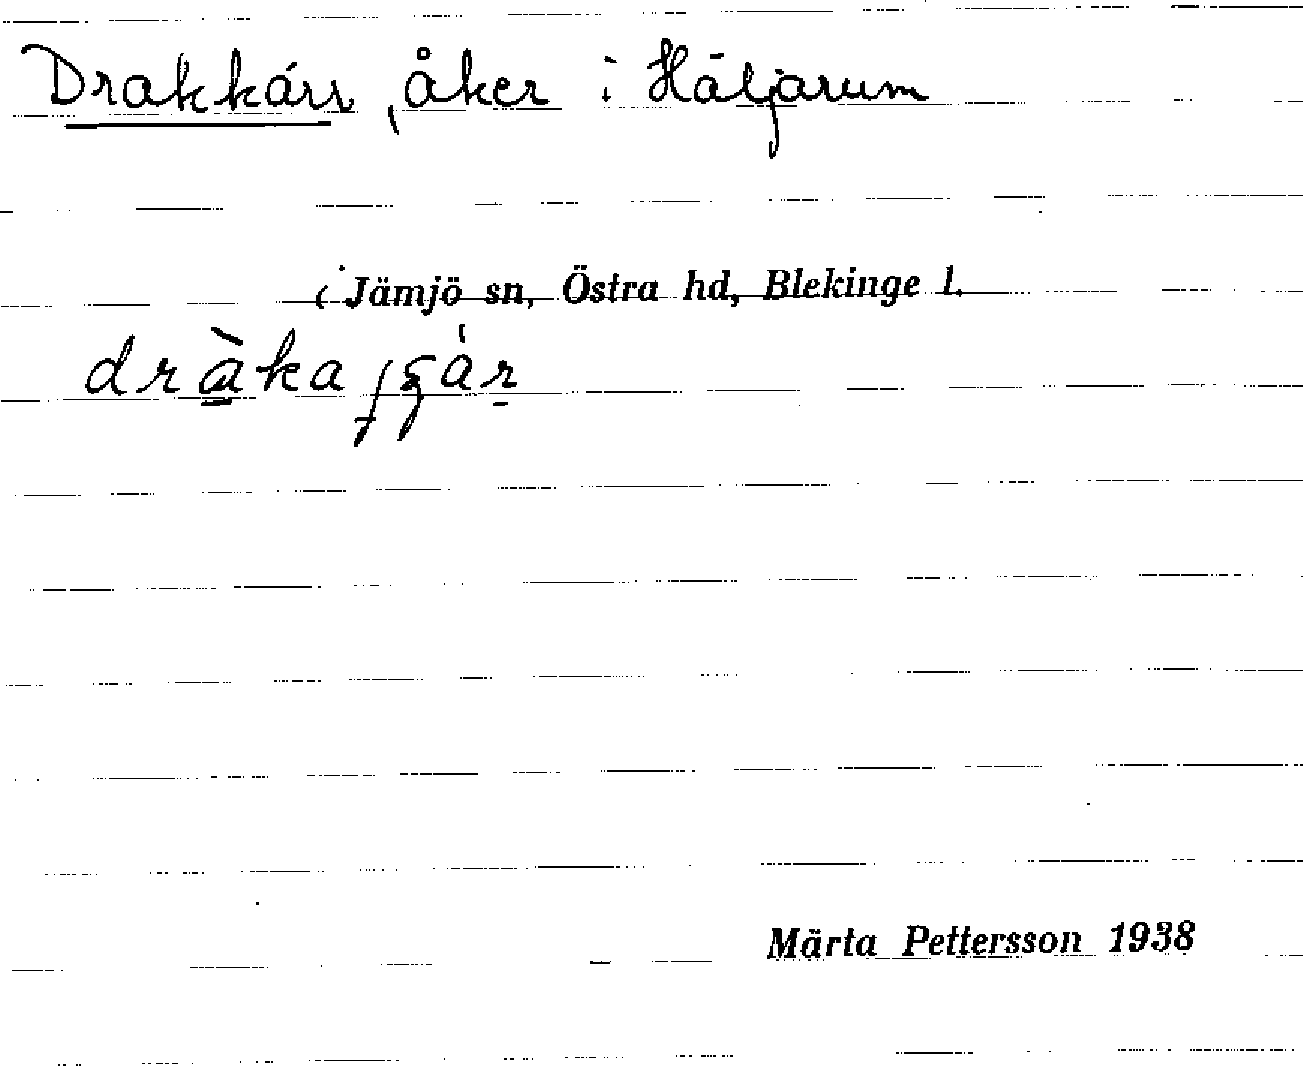 Drakkärr, åker i Häljarum
i Jämjö sn, Östra hd, Blekinge l.
Märta Pettersson 1938